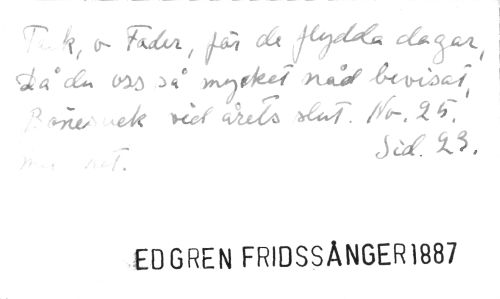 Tack, o Fader, för de flydda dagar,
Då du oss så mycket nåd bevisat,
Bönevek vid årets slut. No. 25.
Sid. 23.
EDGREN FRIDSSÅNGER 1887